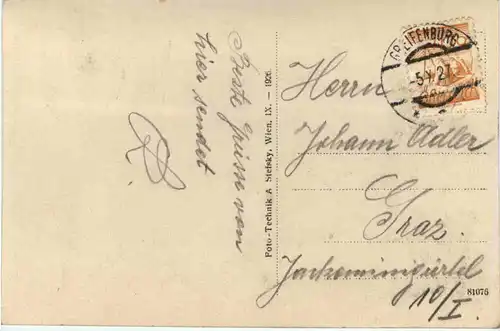 Beste Grüsse von
hier sendet
Foto-Technik A Stefsky, Wien, IX. — 1926.
GREIFENBURG
Herrn
Johann Adler
Graz
Jackominigürtel
10/I
81076